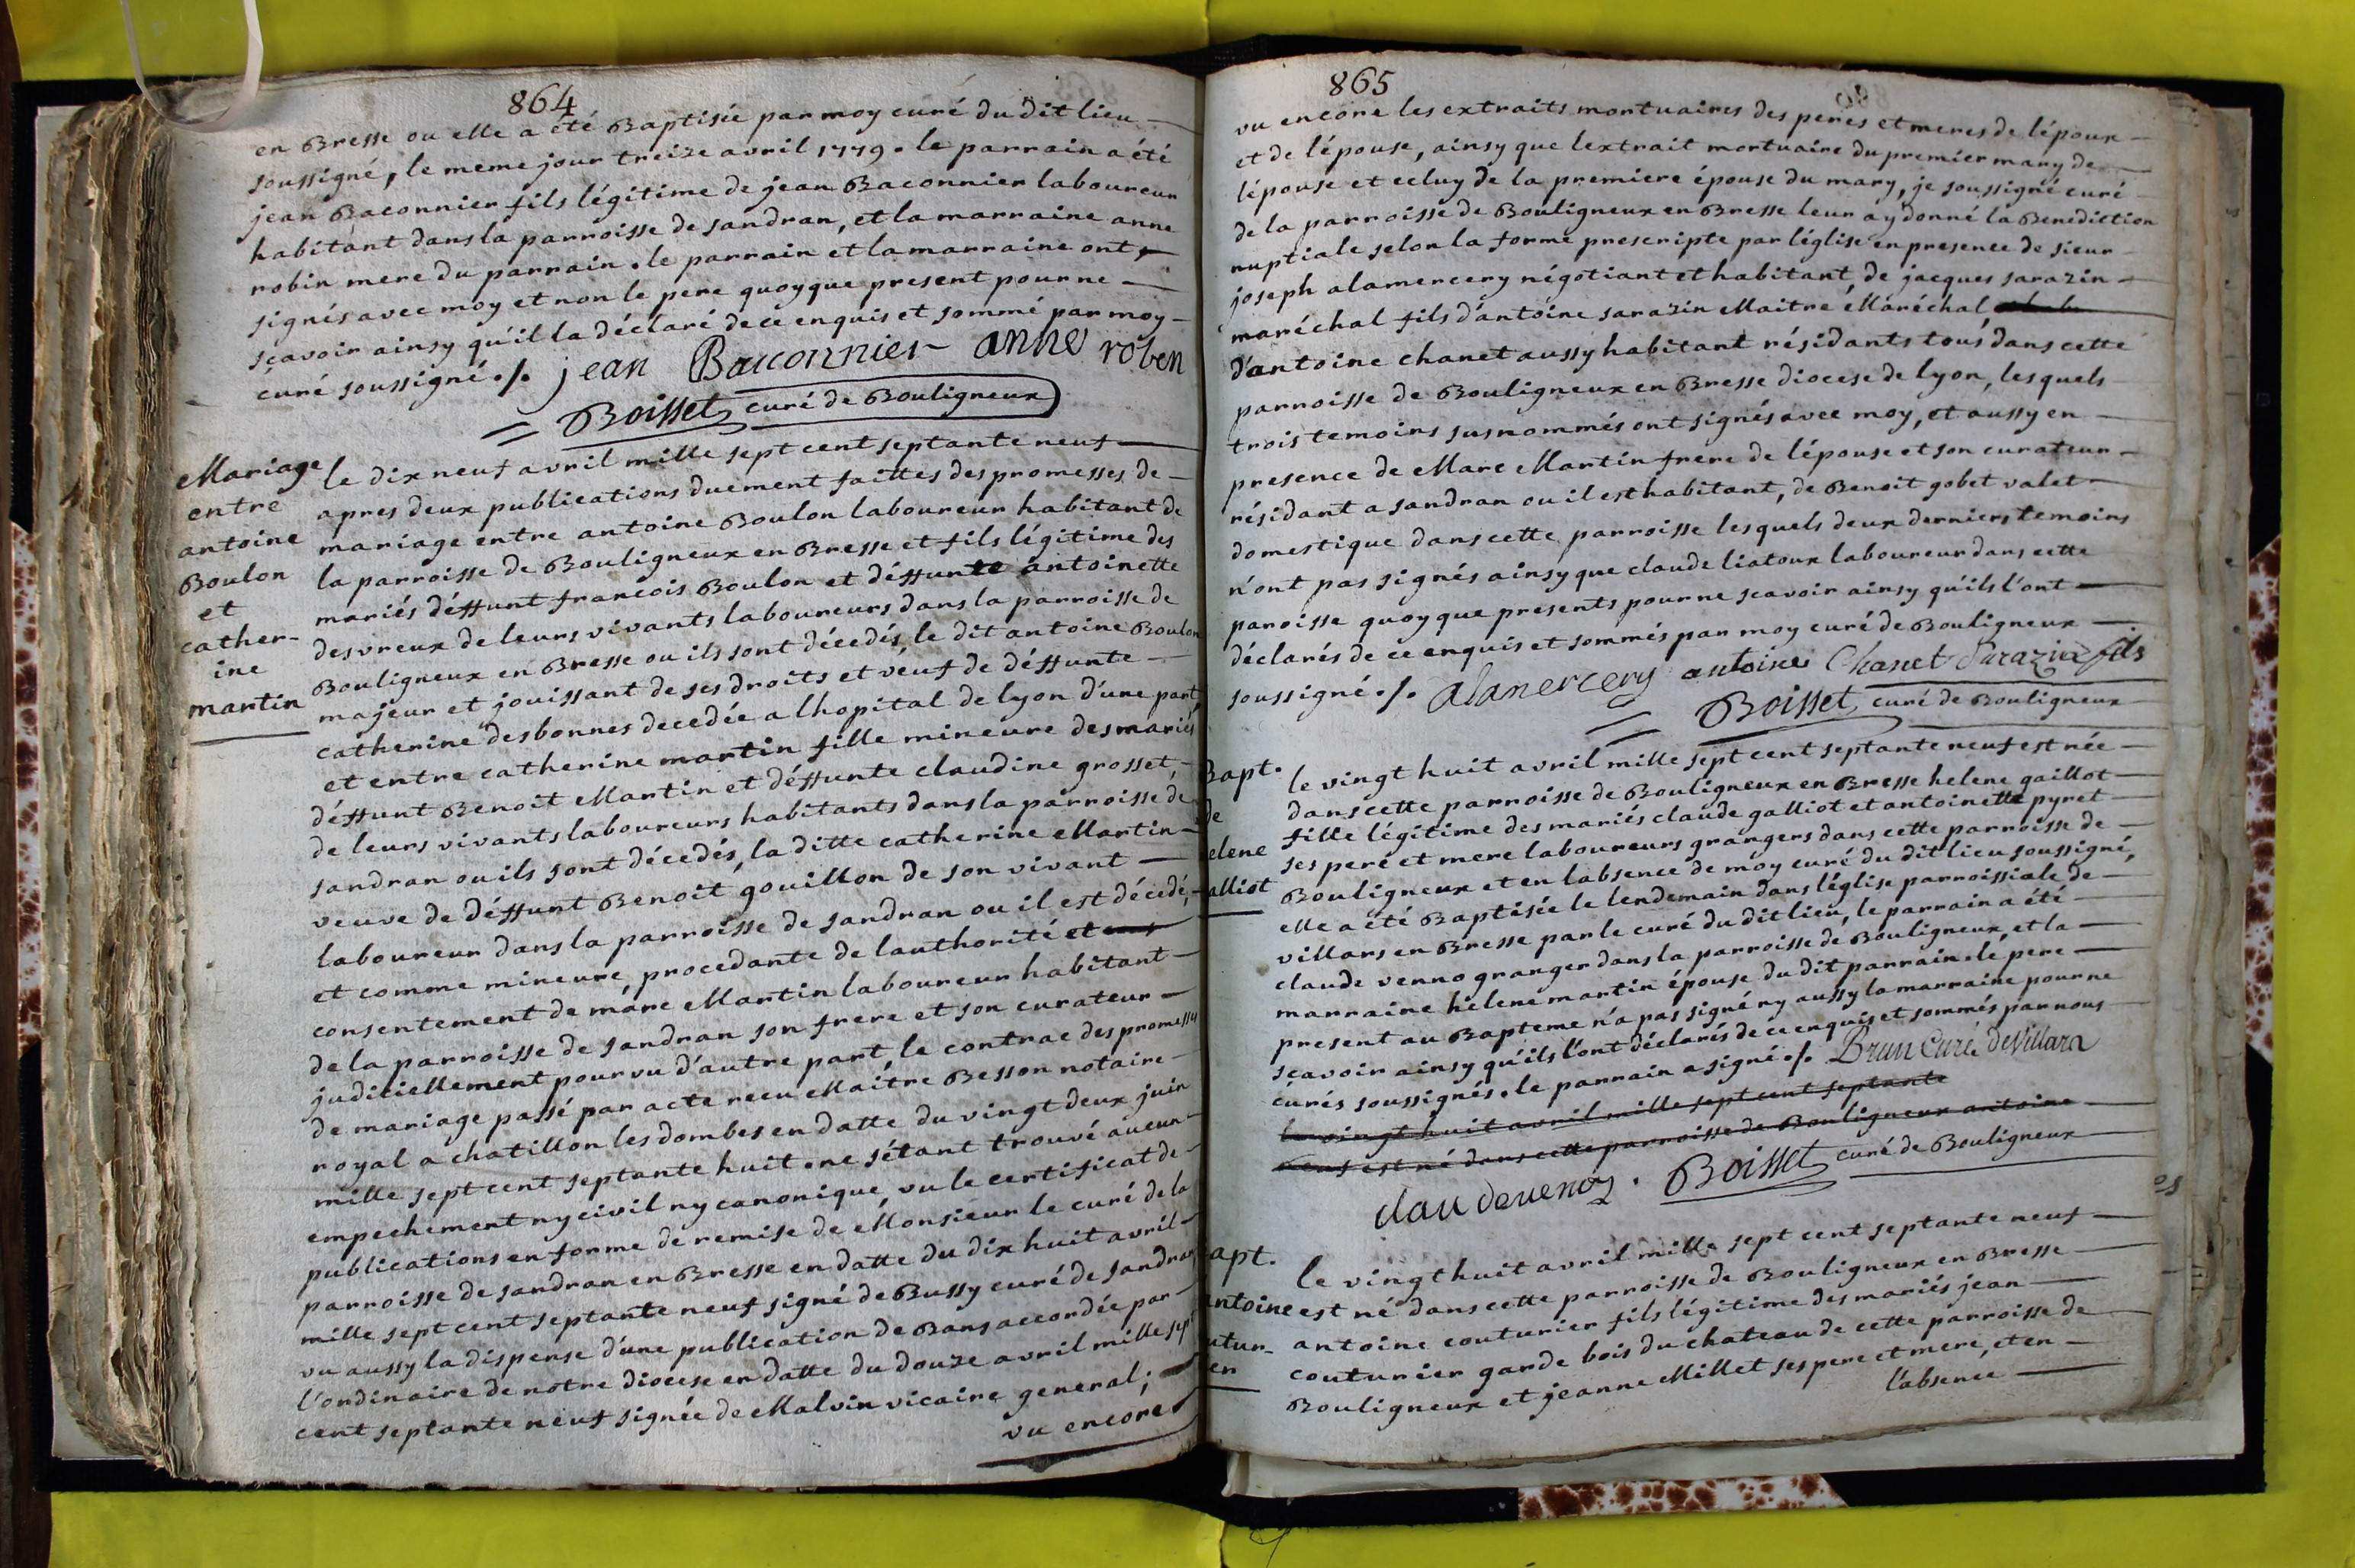 864
en Bresse ou elle a été Baptisée par moy curé du dit lieu
soussigné, le meme jour treize avril 1779. le parrain a été
jean Baconnier fils légitime de jean Baconnier laboureur
habitant dans la parroisse de sandran, et la marraine anne
robin mere du parrain. le parrain et la marraine ont
signés avec moy et non le pere quoyque present pour ne
sçavoir ainsy qu'il la déclaré de ce enquis et sommé par moy
curé soussigné ./. jean Baconnier anne roben
= Boisset curé de Bouligneux
Mariage
entre
antoine
Boulon
et
cather-
ine
martin
le dix neuf avril mille sept cent septante neuf
apres deux publications duement faittes des promesses de
mariage entre antoine Boulon laboureur habitant de
la parroisse de Bouligneux en Bresse et fils légitime des
mariés déffunt francois Boulon et déffunte antoinette
desvreux de leurs vivants laboureurs dans la parroisse de
Bouligneux en Bresse ou ils sont décedés, le dit antoine Boulon
majeur et jouissant de ses droits et veuf de déffunte
catherine desbonnes decedée a lhopital de lyon d'une part,
et entre catherine martin fille mineure des mariés
déffunt Benoit Martin et déffunte claudine grosset,
de leurs vivants laboureurs habitants dans la parroisse de
sandran ou ils sont décedés, la ditte catherine Martin
veuve de déffunt Benoit gouillon de son vivant
laboureur dans la parroisse de sandran ou il est décedé,
et comme mineure, procedante de lauthorité et
consentement de marc Martin laboureur habitant
de la parroisse de sandran son frere et son curateur
juditiellement pourvu d'autre part, le contrac des promesses
de mariage passé par acte recu Maitre Besson notaire
royal a chatillon les dombes en datte du vingt deux juin
mille sept cent septante huit. ne s'étant trouvé aucun
empechement ny civil ny canonique, vu le certificat de
publications en forme de remise de Monsieur le curé de la
parroisse de sandran en Bresse en datte du dix huit avril
mille sept cent septante neuf signé de Bussy curé de sandran
vu aussy la dispense d'une publication de Bans accordée par
l'ordinaire de notre diocese en datte du douze avril mille sept
cent septante neuf signée de Malvin vicaire general;
vu encore
865
vu encore les extraits mortuaires des peres et meres de l'époux
et de l'épouse, ainsy que lextrait mortuaire du premier mary de
l'épouse et celuy de la premiere épouse du mary, je soussigné curé
de la parroisse de Bouligneux en Bresse leur ay donné la Benediction
nuptiale selon la forme prescripte par l'église en presence de sieur
joseph alamercery négotiant et habitant, de jacques sarazin
maréchal fils d'antoine sarazin Maitre Maréchal
d'antoine chanet aussy habitant résidants tous dans cette
parroisse de Bouligneux en Bresse diocese de lyon, lesquels
trois temoins susnommés ont signés avec moy, et aussy en
presence de Marc Martin frere de l'épouse et son curateur
résidant a sandran ou il est habitant, de Benoit gobet valet
domestique dans cette parroisse lesquels deux derniers temoins
n'ont pas signés ainsy que claude liatoux laboureur dans cette
paroisse quoyque presents pour ne scavoir ainsy qu'ils l'ont
déclarés de ce enquis et sommés par moy curé de Bouligneux
soussigné ./. alamercery antoine Chanet Sarazin fils
= Boisset curé de Bouligneux
Bapt.
de
elene
alliot
le vingt huit avril mille sept cent septante neuf est née
dans cette parroisse de Bouligneux en Bresse helene gaillot
fille légitime des mariés claude galliot et antoinette pyret
ses pere et mere laboureurs grangers dans cette parroisse de
Bouligneux et en labsence de moy curé du dit lieu soussigné,
elle a été Baptisée le lendemain dans l'église parroissiale de
villars en Bresse par le curé du dit lieu, le parrain a été
claude venno granger dans la parroisse de Bouligneux, et la
marraine helene martin épouse du dit parrain. le pere
present au Bapteme n'a pas signé ny aussy la marraine pour ne
scavoir ainsy qu'ils l'ont déclarés de ce enquis et sommés par nous
curés soussignés. le parrain a signé ./. Brun Curé de Villars
le vingt huit avril mille sept cent septante
neuf est né dans cette parroisse de Bouligneux antoine
claudevenoy. Boisset curé de Bouligneux
apt.
antoine
utur-
er
le vingt huit avril mille sept cent septante neuf
est né dans cette parroisse de Bouligneux en Bresse
antoine couturier fils légitime des mariés jean
couturier garde bois du chateau de cette parroisse de
Bouligneux et jeanne Millet ses pere et mere, et en
l'absence